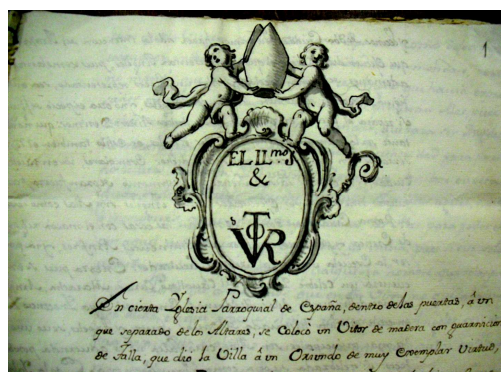 1
EL ILmo S
&
VTOR
En cierta Yglesia Parroquial de España, dentro de las puertas, â un
que separado de los Altares, se colocò un Vitor de madera con guarnicion
de Talla, que diò la Villa â un Oriundo de muy Exemplar Virtud,